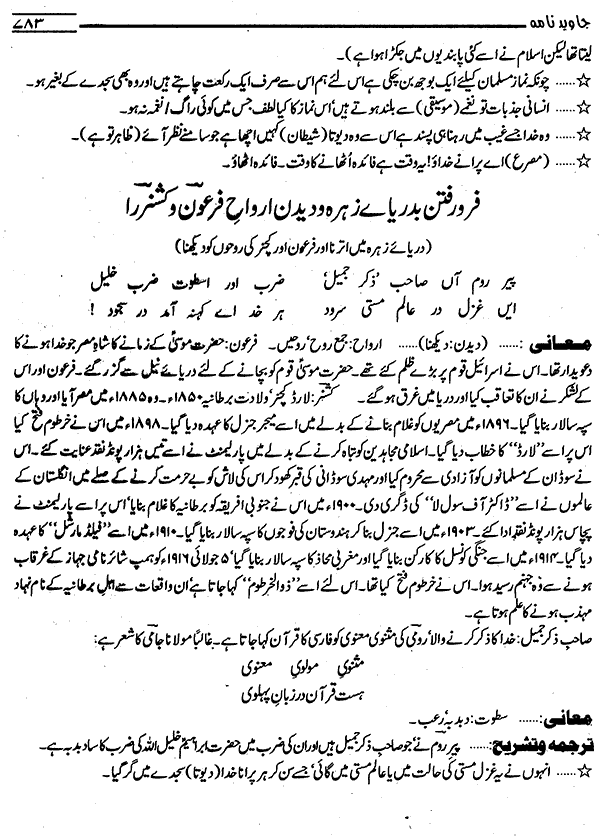 جاوید نامہ ۷۸۳
لیتا تھا لیکن اسلام نے اسے کئی پابندیوں میں جکڑا ہوا ہے)۔
☆...... چونکہ نماز مسلمان کیلئے ایک بوجھ بن چکی ہے اس لئے ہم اس سے صرف ایک رکعت چاہتے ہیں اور وہ بھی سجدے کے بغیر ہو۔
☆...... انسانی جذبات تو نغمے (موسیقی) سے بلند ہوتے ہیں' اس نماز کا کیا لطف جس میں کوئی راگ' نغمہ نہ ہو۔
☆...... وہ خدا جسے غیب میں رہنا ہی پسند ہے اس سے وہ دیوتا (شیطان) کہیں اچھا ہے جو سامنے نظر آئے (ظاہر تو ہے)۔
☆...... (مصرع) اے پرانے خداؤ! یہ وقت ہے فائدہ اُٹھانے کا وقت۔ فائدہ اٹھاؤ۔
فرو رفتن بدریاے زہرہ و دیدن ارواحِ فرعون و کشنر را
(دریائے زہرہ میں اترنا اور فرعون اور کچنر کی روحوں کو دیکھنا)
پیر روم آں صاحب 'ذکر جمیل' ضرب اور اسطوت ضرب خلیل
ایں غزل در عالم مستی سرود ہر خد اے کہنہ آمد در سجود !
معانی:...... (دیدن: دیکھنا)...... ارواح: جمع روح' روحیں۔ فرعون: حضرت موسیٰؑ کے زمانے کا شاہِ مصر جو خدا ہونے کا
دعویدار تھا۔ اس نے اسرائیل قوم پر بڑے ظلم کئے تھے۔ حضرت موسیٰؑ قوم کو بچانے کے لئے دریائے نیل سے گزر گئے۔ فرعون اور اس
کے لشکر نے ان کا تعاقب کیا اور دریا میں غرق ہو گئے۔ کشنر: لارڈ کچنر' ولادت برطانیہ ۱۸۵۰ء۔ وہ ۱۸۸۵ء میں مصر آیا اور وہاں کا
سپہ سالار بنایا گیا۔ ۱۸۹۶ء میں مصریوں کو غلام بنانے کے بدلے میں اسے میجر جنرل کا عہدہ دیا گیا۔ ۱۸۹۸ء میں اس نے خرطوم فتح کیا
اس پر اسے ''لارڈ'' کا خطاب دیا گیا۔ اسلامی مجاہدین کو تباہ کرنے کے بدلے میں پارلیمنٹ نے اسے تیس ہزار پونڈ نقد عنایت کئے۔ اس
نے سوڈان کے مسلمانوں کو آزادی سے محروم کیا اور مہدی سوڈانی کی قبر کھود کر اس کی لاش کو بے حرمت کرنے کے صلے میں انگلستان کے
عالموں نے اسے ''ڈاکٹر آف سول لا'' کی ڈگری دی۔ ۱۹۰۰ء میں اس نے جنوبی افریقہ کو برطانیہ کا غلام بنایا' اس پر اسے پارلیمنٹ نے
پچاس ہزار پونڈ نقد ادا کئے۔ ۱۹۰۳ء میں اسے جنرل بنا کر ہندوستان کی فوجوں کا سپہ سالار بنایا گیا۔ ۱۹۱۰ء میں اسے ''فیلڈ مارشل'' کا عہدہ
دیا گیا۔ ۱۹۱۴ء میں اسے جنگی کونسل کا رکن بنایا گیا اور مغربی محاذ کا سپہ سالار بنایا گیا' ۵ جولائی ۱۹۱۶ء کو ہمپ شائر نامی جہاز کے غرقاب
ہونے سے وہ جہنم رسید ہوا۔ اس نے خرطوم فتح کیا تھا۔ اس لئے اسے ''ذوالخرطوم'' کہا جاتا ہے' ان واقعات سے اہلِ برطانیہ کے نام نہاد
مہذب ہونے کا علم ہوتا ہے۔
صاحب ذکر جمیل: خدا کا ذکر کرنے والا' رومیؒ کی مثنوی معنوی کو فارسی کا قرآن کہا جاتا ہے۔ غالباً مولانا جامیؒ کا شعر ہے:
مثنویِ مولویِ معنوی
ہست قرآن در زبانِ پہلوی
معانی:...... سطوت: دبدبہ' رعب۔
ترجمہ وتشریح:...... پیرِ رومؒ نے' جو صاحب ذکر جمیل ہیں اور ان کی ضرب میں حضرت ابراہیم خلیل اللہ کی ضرب کا سا دبدبہ ہے۔
☆...... انہوں نے یہ غزل مستی کی حالت میں یا عالم مستی میں گائی' جسے سن کر ہر پرانا خدا (دیوتا) سجدے میں گر گیا۔